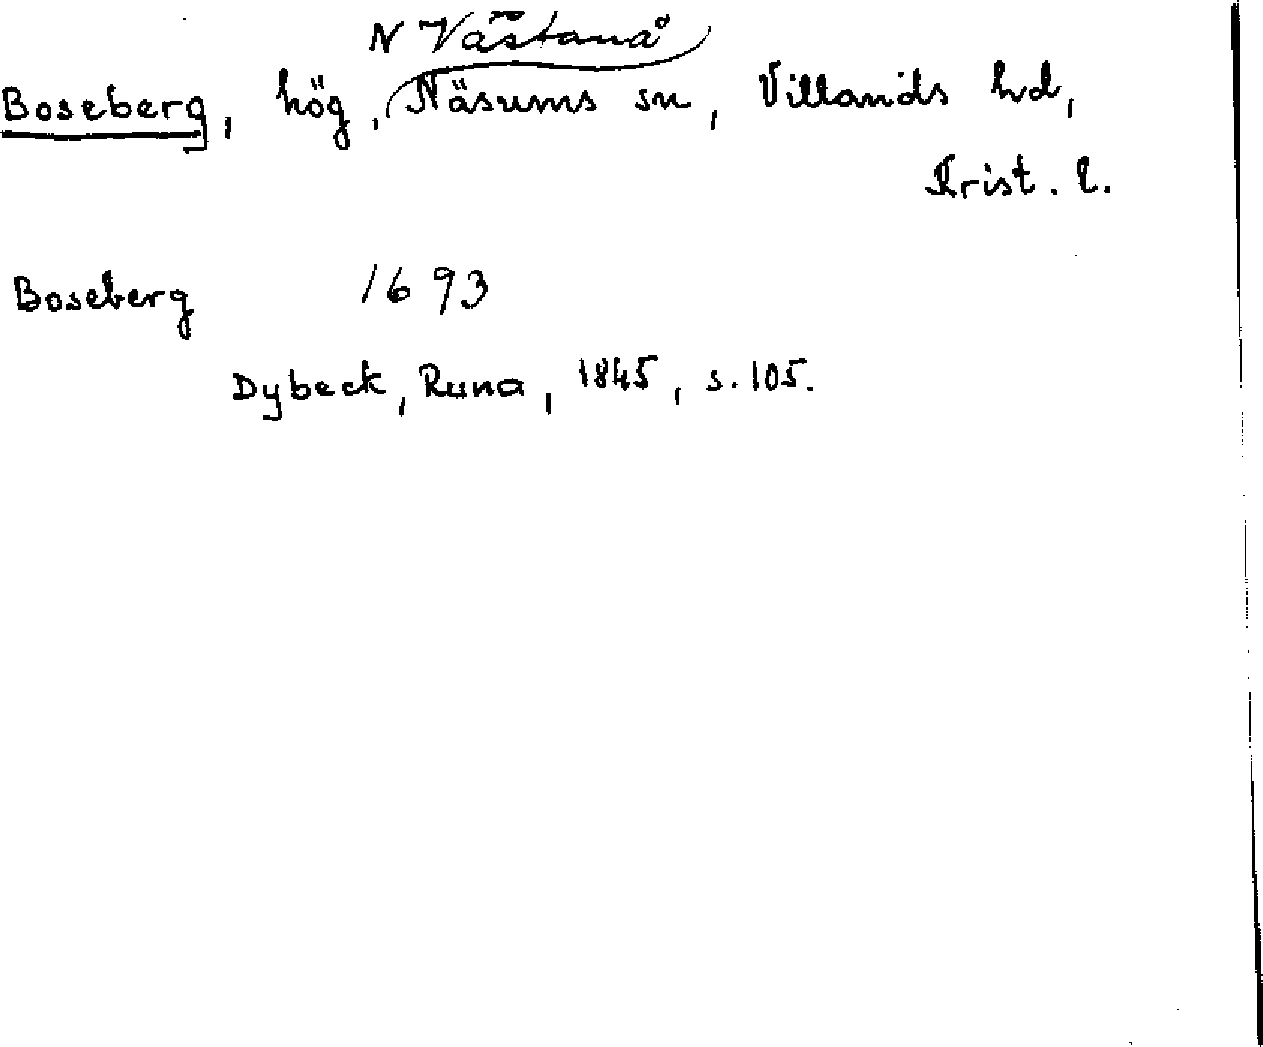 N Västanå
Boseberg, hög, Näsums sn, Villands hd,
Krist. l.
Boseberg 1693
Dybeck, Runa, 1845, s. 105.